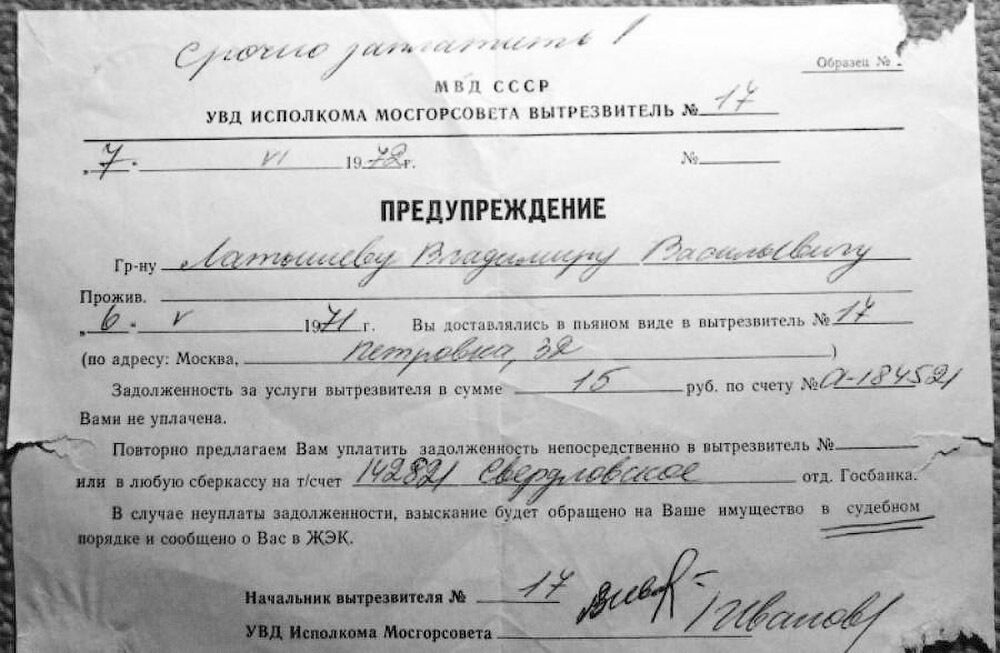 Срочно заплатить!
Образец №
МВД СССР
УВД ИСПОЛКОМА МОСГОРСОВЕТА ВЫТРЕЗВИТЕЛЬ № 17
„7" VI 1972 г. №
ПРЕДУПРЕЖДЕНИЕ
Гр-ну Латышеву Владимиру Васильевичу
Прожив.
„6" V 1971 г. Вы доставлялись в пьяном виде в вытрезвитель № 17
(по адресу: Москва, Петровка, 32)
Задолженность за услуги вытрезвителя в сумме 15 руб. по счету № А-184521
Вами не уплачена.
Повторно предлагаем Вам уплатить задолженность непосредственно в вытрезвитель №
или в любую сберкассу на т/счет 142821 Свердловское отд. Госбанка.
В случае неуплаты задолженности, взыскание будет обращено на Ваше имущество в судебном
порядке и сообщено о Вас в ЖЭК.
Начальник вытрезвителя № 17
УВД Исполкома Мосгорсовета Иванов